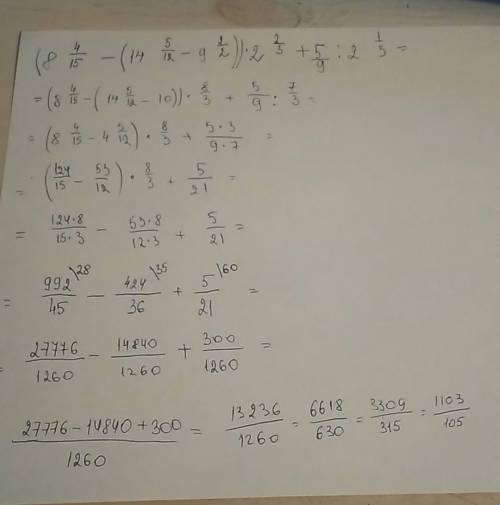 (8 4/15 − (14 5/12 − 9 2/2)) · 2 2/3 + 5/9 : 2 1/3 =
= (8 4/15 − (14 5/12 − 10)) · 8/3 + 5/9 : 7/3 =
= (8 4/15 − 4 5/12) · 8/3 + 5·3/9·7 =
= (124/15 − 53/12) · 8/3 + 5/21 =
= 124·8/15·3 − 53·8/12·3 + 5/21 =
= 992/45 \28 − 424/36 \35 + 5/21 \60 =
= 27776/1260 − 14840/1260 + 300/1260 =
27776 − 14840 + 300/1260 = 13236/1260 = 6618/630 = 3309/315 = 1103/105